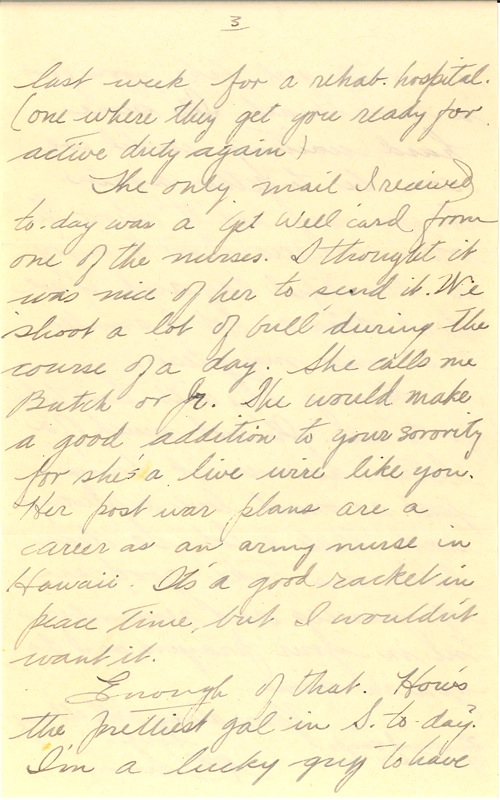 3
last week for a rehab. hospital.
(one where they get you ready for
active duty again)
The only mail I received
to-day was a "get well" card from
one of the nurses. I thought it
was nice of her to send it. We
"shoot a lot of bull" during the
course of a day. She calls me
Butch or Jr. She would make
a good addition to your sorority
for she's a live wire like you.
Her post war plans are a
career as an army nurse in
Hawaii. It's a good racket in
peace time, but I wouldn't
want it.
Enough of that. How's
the prettiest gal in S. to-day.
I'm a lucky guy to have